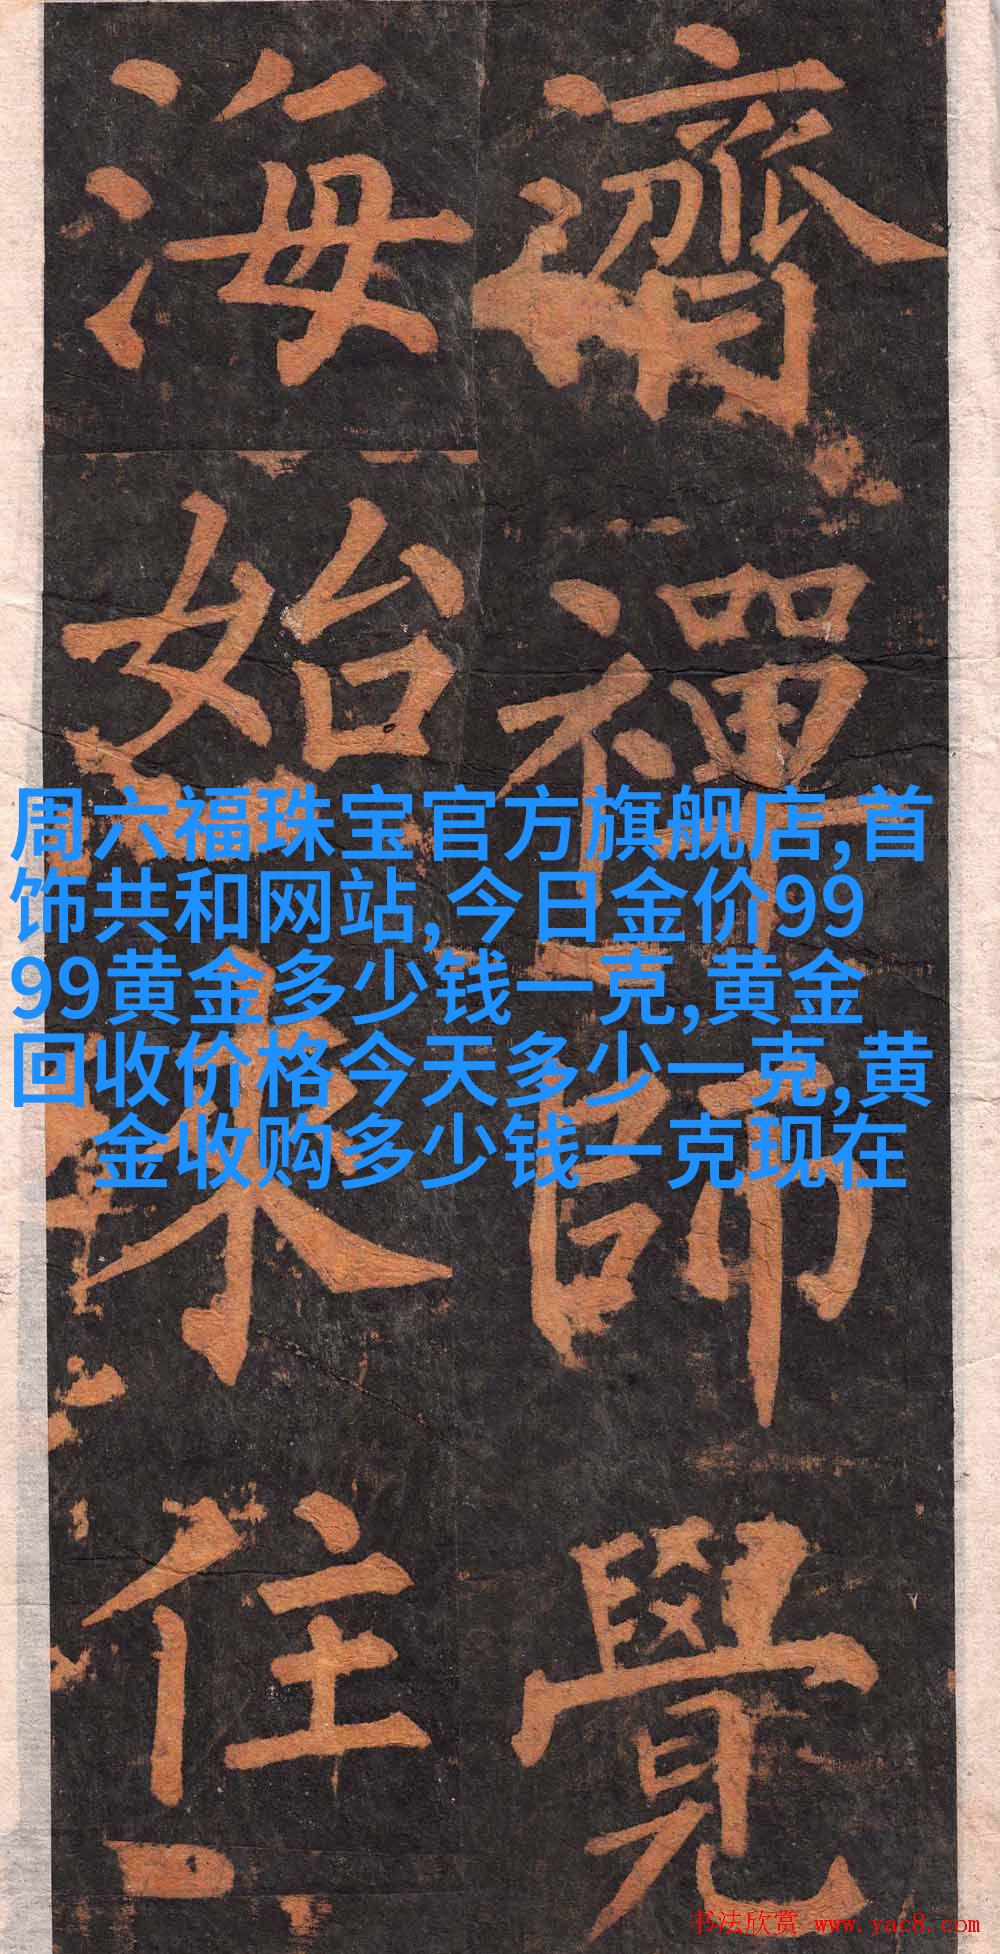 濟禪師覺
海始來住
周六福珠宝官方旗舰店,首
饰共和网站,今日金价99
99黄金多少钱一克,黄金
回收价格今天多少一克,黄
金收购多少钱一克现在
书法欣赏 www.yac8.com